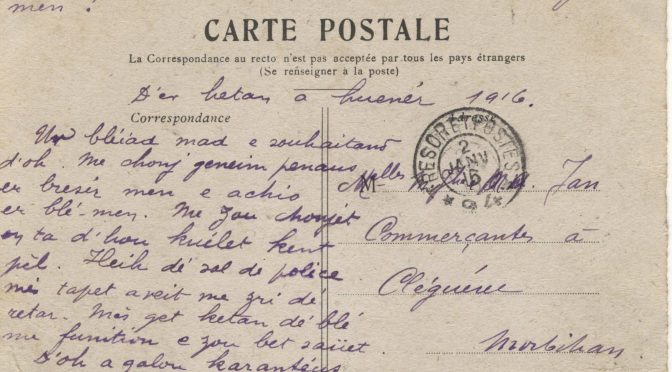 men !
CARTE POSTALE
La Correspondance au recto n'est pas acceptée par tous les pays étrangers
(Se renseigner à la poste)
D'er ketan a huenér 1916.
Correspondance
Adresse
Ur bléiad mad e souhaitand
d'oh. Me chonj geneim penaus
er bresér men e achiv
er blé-men. Me zou chonjet
en ta d'hou kuélet kent
pèl. Heih dé sal de police
mes tapet aveit me zri dé
retar. Mes get ketan dé blé
me funition e zou bet saüet
D'oh a galon karantéus
TRESOR ET POSTES
2
JANV
M
elles
Jan
Commerçantes à
Cléguérec
Morbihan